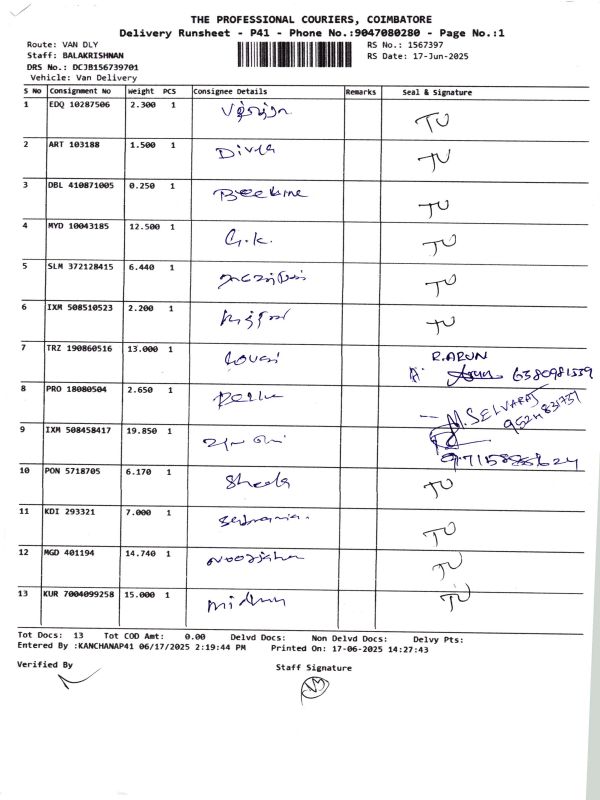 THE PROFESSIONAL COURIERS, COIMBATORE
Delivery Runsheet - P41 - Phone No.:9047080280 - Page No.:1
Route: VAN DLY RS No.: 1567397
Staff: BALAKRISHNAN RS Date: 17-Jun-2025
DRS No.: DCJB156739701
Vehicle: Van Delivery
S No Consignment No Weight PCS Consignee Details Remarks Seal & Signature
1 EDQ 10287506 2.300 1 TU
2 ART 103188 1.500 1 Divya TU
3 DBL 410871005 0.250 1 TU
4 MYD 10043185 12.500 1 G.K. TU
5 SLM 372128415 6.440 1 TU
6 IXM 508510523 2.200 1 TU
7 TRZ 190860516 13.000 1 R.ARUN
Arun 6380981559
8 PRO 18080504 2.650 1 M.SELVARAJ
9524831737
9 IXM 508458417 19.850 1
10 PON 5718705 6.170 1 Sheela TU
11 KDI 293321 7.000 1 TU
12 MGD 401194 14.740 1 Noorjahan TU
13 KUR 7004099258 15.000 1 Midhun TU
Tot Docs: 13 Tot COD Amt: 0.00 Delvd Docs: Non Delvd Docs: Delvy Pts:
Entered By :KANCHANAP41 06/17/2025 2:19:44 PM Printed On: 17-06-2025 14:27:43
Verified By Staff Signature